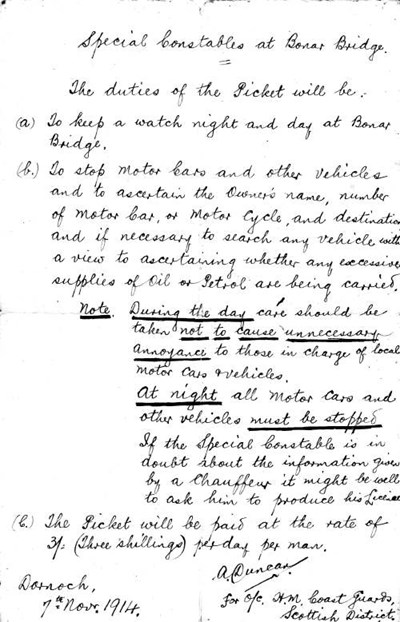 Special Constables at Bonar Bridge.
The duties of the Picket will be:
(a) To keep a watch night and day at Bonar
Bridge.
(b.) To stop Motor Cars and other vehicles
and to ascertain the Owner's name, number
of Motor Car, or Motor Cycle, and destination
and if necessary to search any vehicle with
a view to ascertaining whether any excessive
supplies of Oil or Petrol are being carried.
Note. During the day care should be
taken not to cause unnecessary
annoyance to those in charge of local
motor cars & vehicles.
At night all Motor Cars and
other vehicles must be stopped
If the Special Constable is in
doubt about the information given
by a Chauffeur it might be well
to ask him to produce his License
(C.) The Picket will be paid at the rate of
3/- (Three shillings) per day per man.
A. Duncan.
Dornoch,
7th Nov. 1914.
For O/C. H.M. Coast Guards,
Scottish District.